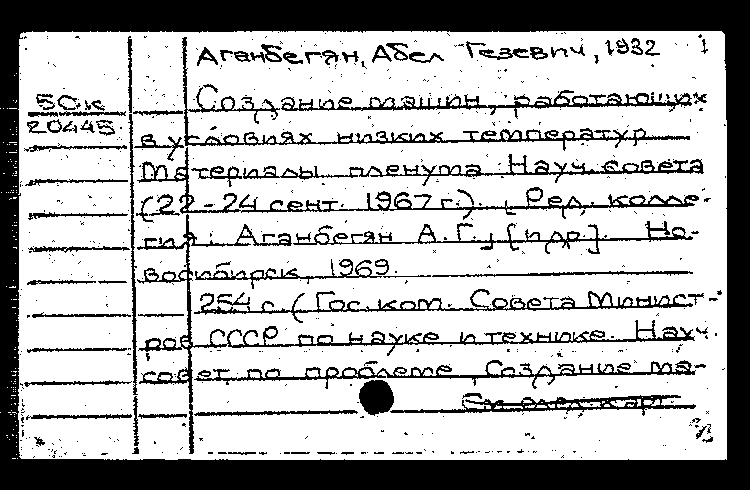 Аганбегян, Абел Гезевич, 1932 1
50к
20445
Создание машин, работающих
в условиях низких температур
Материалы пленума Науч. совета
(22-24 сент. 1967 г.). [Ред. колле-
гия: Аганбегян А.Г.] [и др.]. Но-
восибирск, 1969.
254 с. (Гос. ком. Совета Минист-
ров СССР по науке и технике. Науч.
совет по проблеме "Создание ма-
См. след. карт.